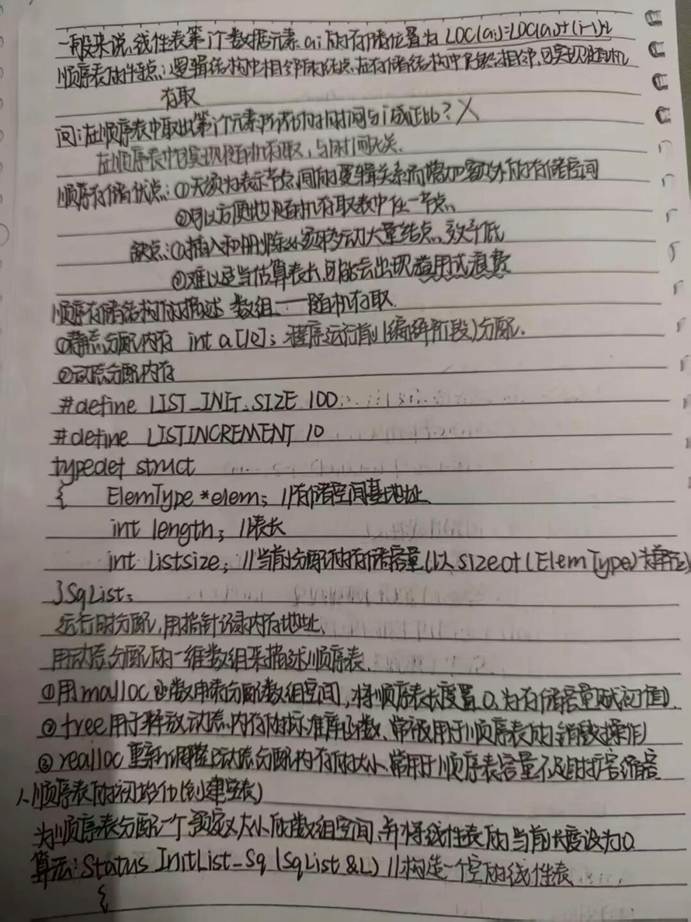 一般来说,线性表第i个数据元素ai的存储位置为 LOC(ai)=LOC(a1)+(i-1)*l
顺序表的特点:逻辑结构中相邻的结点在存储结构中仍相邻,可实现随机
存取
问:在顺序表中取出第i个元素所花的时间与i成正比?×
在顺序表中可实现随机存取,与时间无关.
顺序存储优点:①无须为表示节点间的逻辑关系而增加额外的存储空间
②可以方便地随机存取表中任一节点.
缺点:①插入和删除必须移动大量结点,效率低
②难以适当估算表长,可能会出现滥用或浪费
顺序存储结构的描述 数组——随机存取.
①静态分配内存 int a[10]; 程序运行前(编译阶段)分配.
②动态分配内存
#define LIST_INIT_SIZE 100
#define LISTINCREMENT 10
typedef struct
{ ElemType *elem; //存储空间基地址
int length; //表长
int listsize; //当前分配的存储容量(以sizeof(ElemType)为单位)
}SqList;
运行时分配,用指针记录内存地址.
用动态分配的一维数组来描述顺序表.
①用malloc函数申来分配数组空间,将顺序表长度置0,为存储容量赋初值).
②free用于释放动态内存的标准库函数、常被用于顺序表的销毁操作)
③realloc 重新调整已动态分配内存的大小、常用于顺序表容量不足时扩容缩容
1、顺序表的初始化(创建空表)
为顺序表分配一个预定义大小的数组空间,并将线性表的当前长度设为0.
算法:Status InitList_Sq (SqList &L) //构造一个空的线性表
{